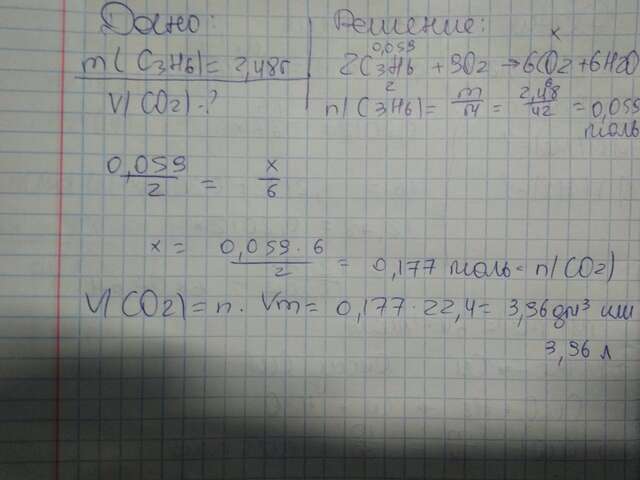 Дано:
m(C3H6)=2,48г
V(CO2)-?
Решение:
0,059 x
2C3H6 + 9O2 → 6CO2 + 6H2O
2 6
n(C3H6)= m/M = 2,48/42 = 0,059
моль
0,059/2 = x/6
x = 0,059·6/2 = 0,177 моль - n(CO2)
V(CO2)= n· Vm= 0,177·22,4= 3,96 дм³ или
3,96 л